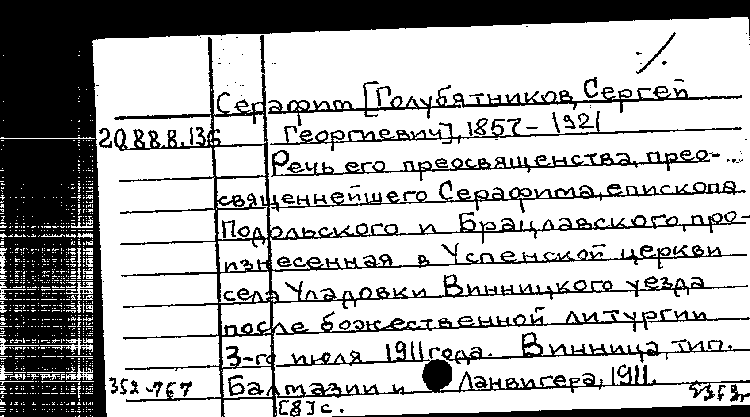 Серафим [Голубятников, Сергей
20.88.8.136 Георгиевич], 1857-1921
Речь его преосвященства, прео-
священнейшего Серафима, епископа
Подольского и Брацлавского, про-
изнесенная в Успенской церкви
села Уладовки Винницкого уезда
после божественной литургии
3-го июля 1911 года. Винница, тип.
352-767 Балмазии и Ланвигера, 1911.
[8] с.